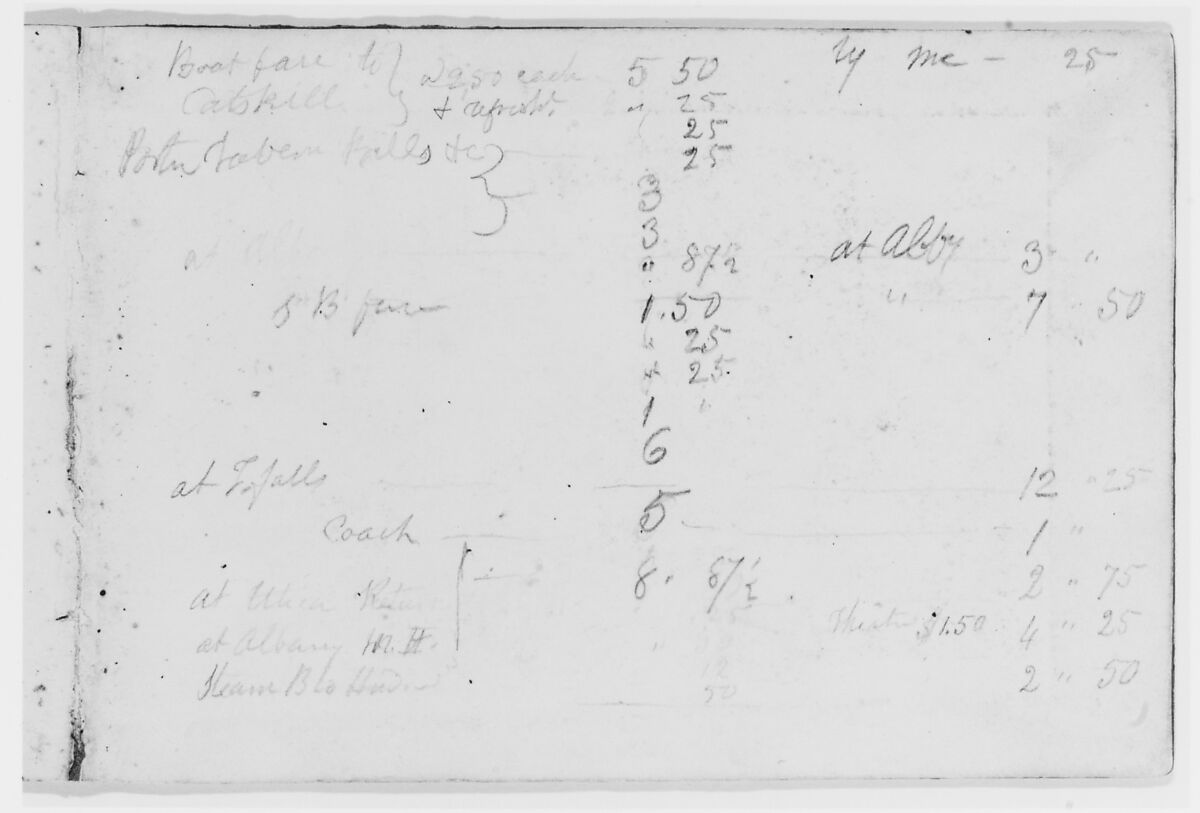 Boat fare to } 2.50 each 5 50 by me - 25
Catskill } + refresht " 25
25
Porter Tavern Bills &c } 25
3
3
at Alby " 87½ at Alby 3 "
S B fare 1.50 " 7 " 50
" 25
+ 25
1 "
6
at T. falls 12 " 25
5
Coach 1 "
at Utica Return 8 " 87½ 2 " 75
at Albany $1.50 4 " 25
Steam B to 12 2 " 50
50